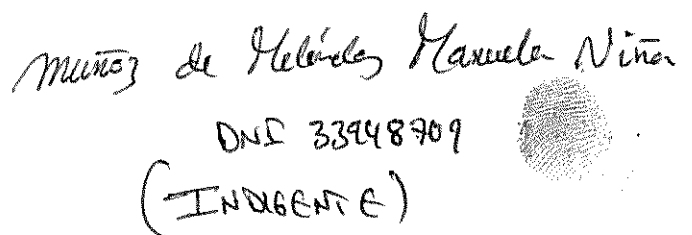 Muñoz de Meléndez Manuela Niña
DNI 33948709
(INDIGENTE)